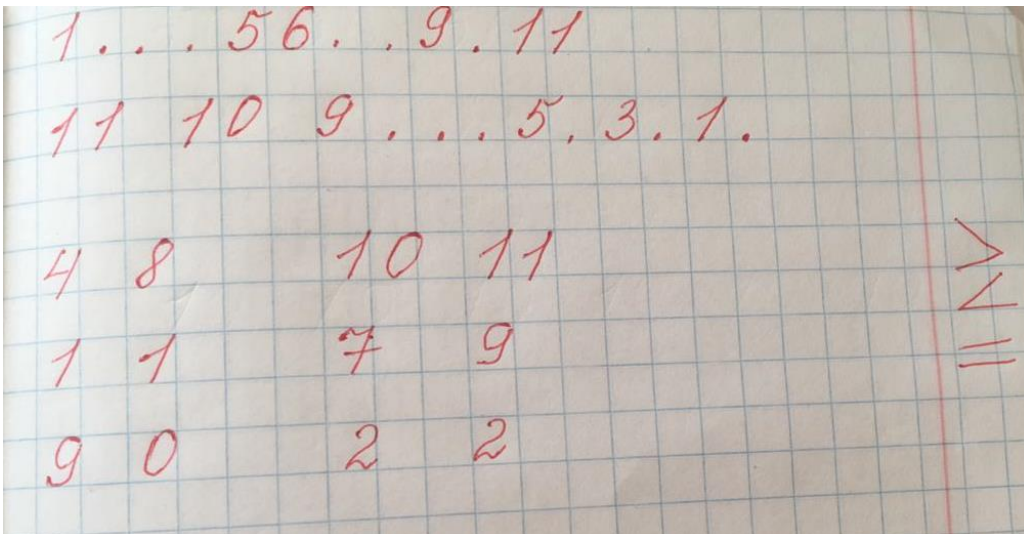 1 . . . 5 6 . . 9 . 11
11 10 9 . . . 5 . 3 . 1 .
4 8 10 11 >
<
1 1 7 9 =
9 0 2 2